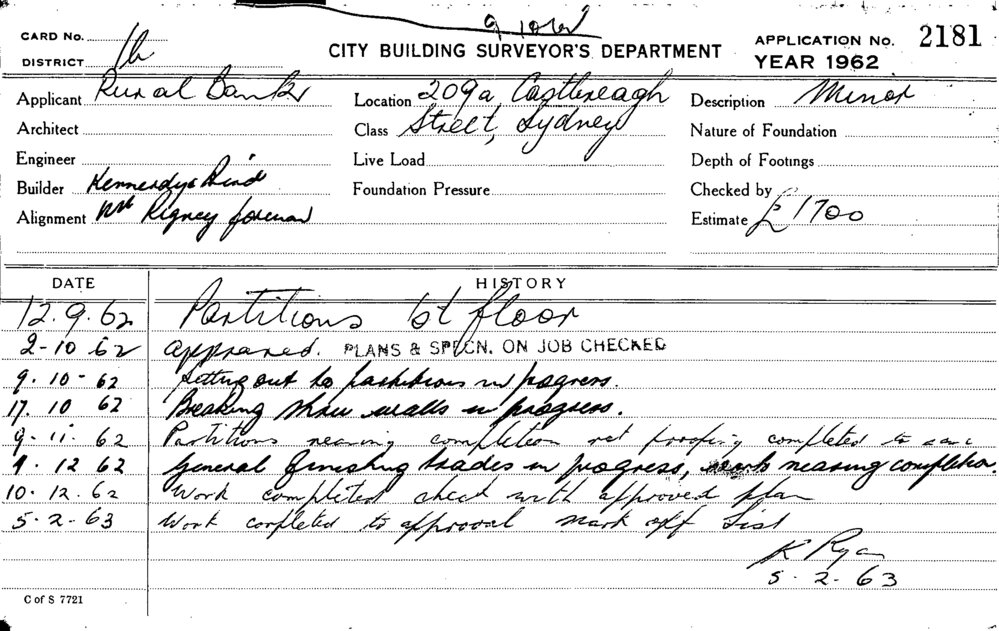 9 10 62
CARD No.
CITY BUILDING SURVEYOR'S DEPARTMENT
APPLICATION No. 2181
DISTRICT 1b
YEAR 1962
Applicant Rural Bank
Location 209a, Castlereagh
Description Minor
Architect
Class Street, Sydney
Nature of Foundation
Engineer
Live Load
Depth of Footings
Builder Kennerdy & Bird
Foundation Pressure
Checked by
Alignment Mr Rigney foreman
Estimate £1700
DATE HISTORY
12.9.62 Partitions 1st floor
2-10 62 approved. PLANS & SPECN. ON JOB CHECKED
9.10-62 Setting out to partitions in progress.
17.10 62 Breaking thru walls in progress.
9.11.62 Partitions nearing completion proofing completed to same
9.12 62 General finishing trades in progress, nearing completion.
10.12.62 Work completed check with approved plan
5.2.63 Work completed to approval mark off List
K Ryan
5.2.63
C of S 7721